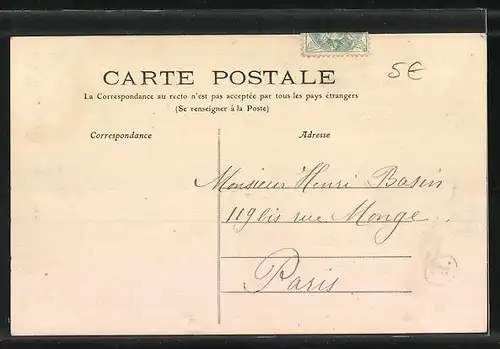 5€
CARTE POSTALE
La Correspondance au recto n'est pas acceptée par tous les pays étrangers
(Se renseigner à la Poste)
Correspondance
Adresse
Monsieur Henri Basin
119 bis rue Monge
Paris